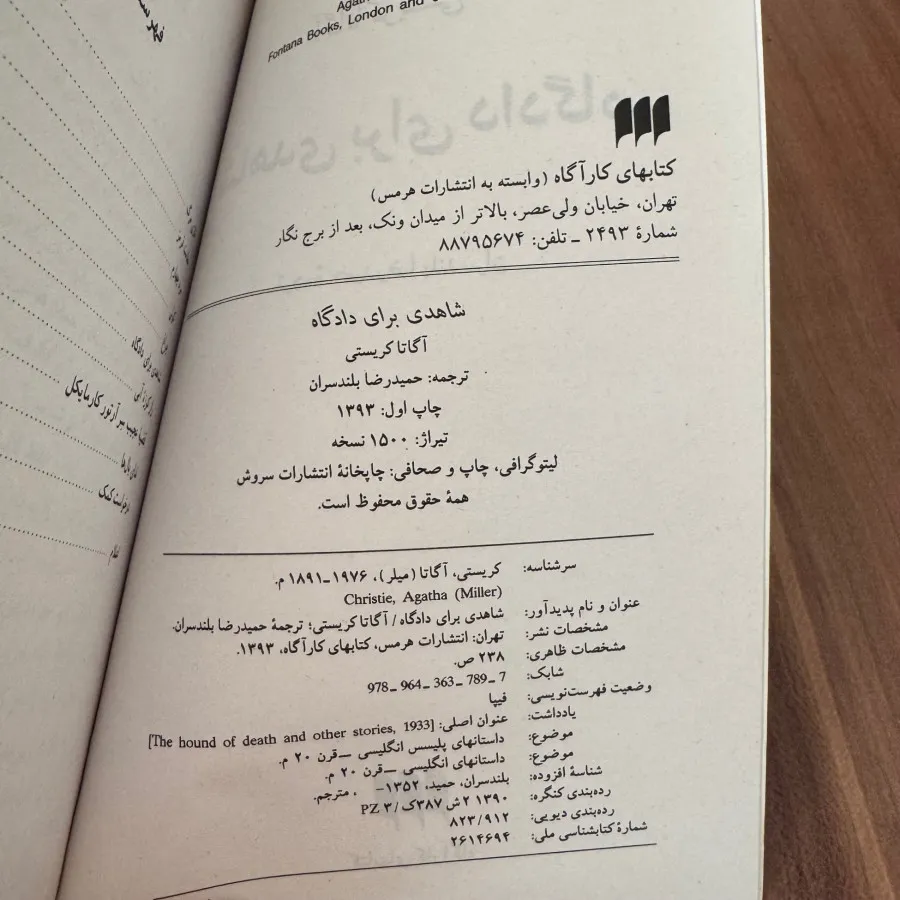 Fontana Books, London and
کتابهای کارآگاه (وابسته به انتشارات هرمس)
تهران، خیابان ولی‌عصر، بالاتر از میدان ونک، بعد از برج نگار
شمارهٔ ۲۴۹۳ ـ تلفن: ۸۸۷۹۵۶۷۴
شاهدی برای دادگاه
آگاتا کریستی
ترجمه: حمیدرضا بلندسران
چاپ اول: ۱۳۹۳
تیراژ: ۱۵۰۰ نسخه
لیتوگرافی، چاپ و صحافی: چاپخانهٔ انتشارات سروش
همهٔ حقوق محفوظ است.
سرشناسه: کریستی، آگاتا (میلر)، ۱۹۷۶ـ۱۸۹۱ م.
Christie, Agatha (Miller)
عنوان و نام پدیدآور: شاهدی برای دادگاه / آگاتا کریستی؛ ترجمهٔ حمیدرضا بلندسران.
مشخصات نشر: تهران: انتشارات هرمس، کتابهای کارآگاه، ۱۳۹۳.
مشخصات ظاهری: ۲۳۸ ص.
شابک: 978ـ 964ـ 363ـ 789ـ 7
وضعیت فهرست‌نویسی: فیپا
یادداشت: عنوان اصلی: [The hound of death and other stories, 1933]
موضوع: داستانهای پلیسی انگلیسی ــ قرن ۲۰ م.
موضوع: داستانهای انگلیسی ــ قرن ۲۰ م.
شناسهٔ افزوده: بلندسران، حمید، ۱۳۵۲ـ ، مترجم.
رده‌بندی کنگره: ۱۳۹۰ ۲ش ۳۸۷ک/ PZ ۳
رده‌بندی دیویی: ۸۲۳/۹۱۲
شمارهٔ کتابشناسی ملی: ۲۶۱۴۶۹۴
شاهدی برای دادگاه
قضیهٔ عجیب سر آرتور کارمایکل